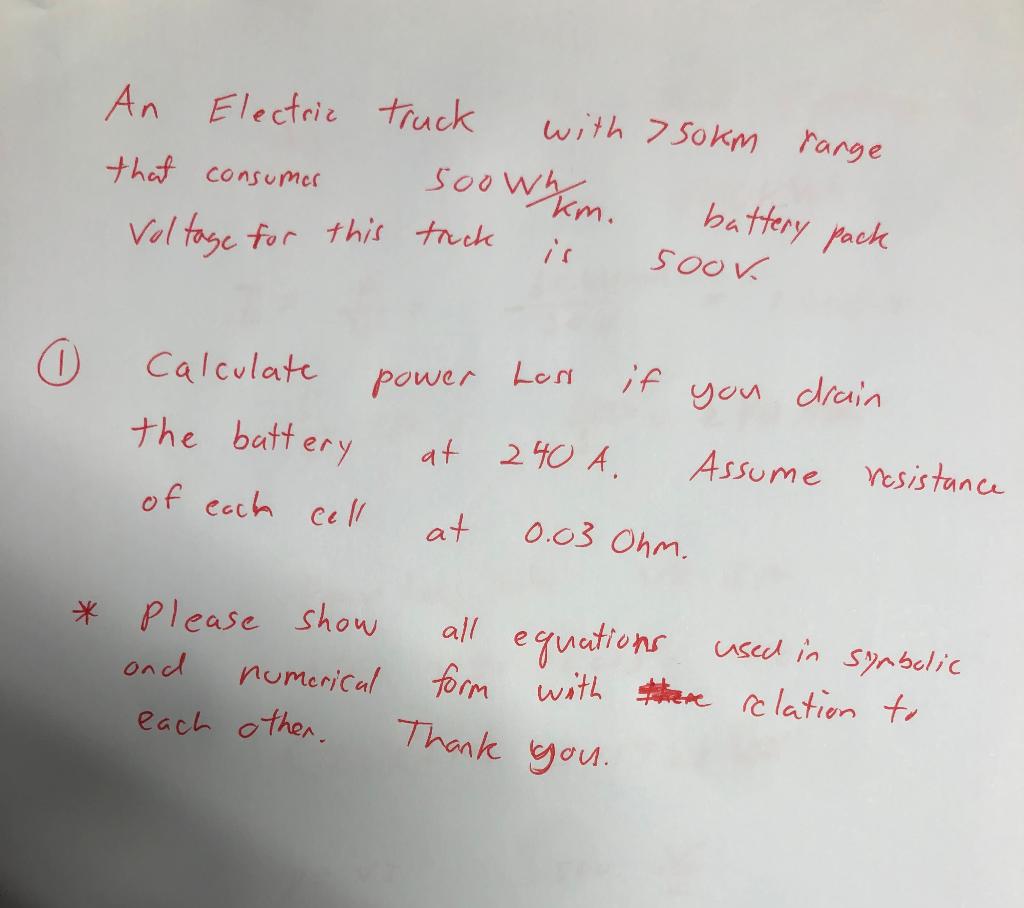 An Electric truck with 750km range
that consumes 500 Wh/km. battery pack
Voltage for this truck is 500V.
① Calculate power Loss if you drain
the battery at 240 A. Assume resistance
of each cell at 0.03 Ohm.
* Please show all equations used in symbolic
and numerical form with relation to
each other. Thank you.